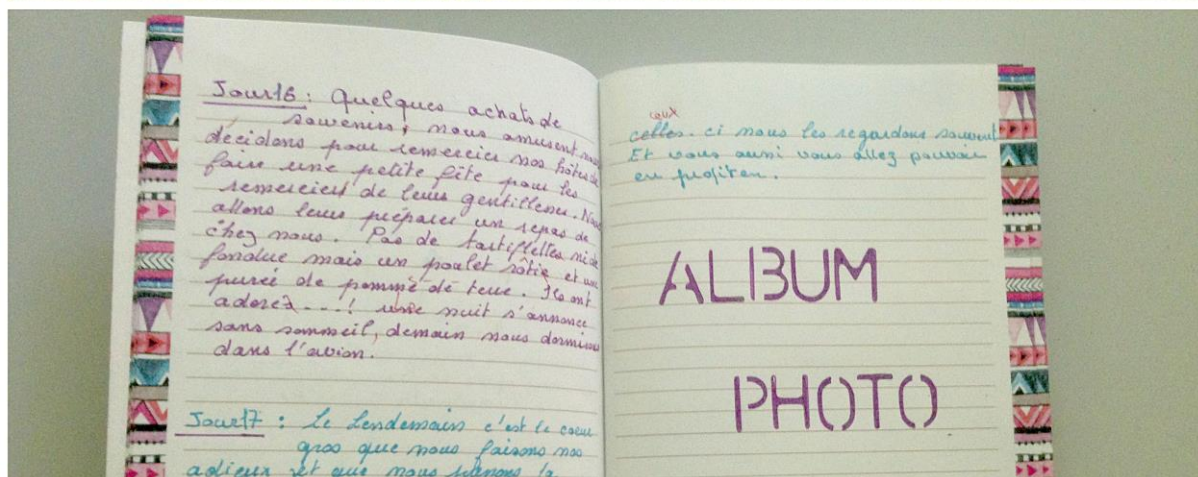 Jour16 : Quelques achats de
souvenirs, nous amusent nous
décidons pour remercier nos hôtes de
faire une petite fête pour les
remercier de leurs gentillesses. Nous
allons leurs préparer un repas de
chez nous. Pas de tartiflettes ni de
fondue mais un poulet rôtie et une
purée de pomme de terre. Ils ont
adorez ---! une nuit s'annonce
sans sommeil, demain nous dormirons
dans l'avion.
Jour17 : Le lendemain c'est le coeur
gros que nous faisons nos
adieux et que nous prenons la
ceux
celles-ci nous les regardons souvent
Et vous aussi vous allez pouvoir
en profiter.
ALBUM
PHOTO